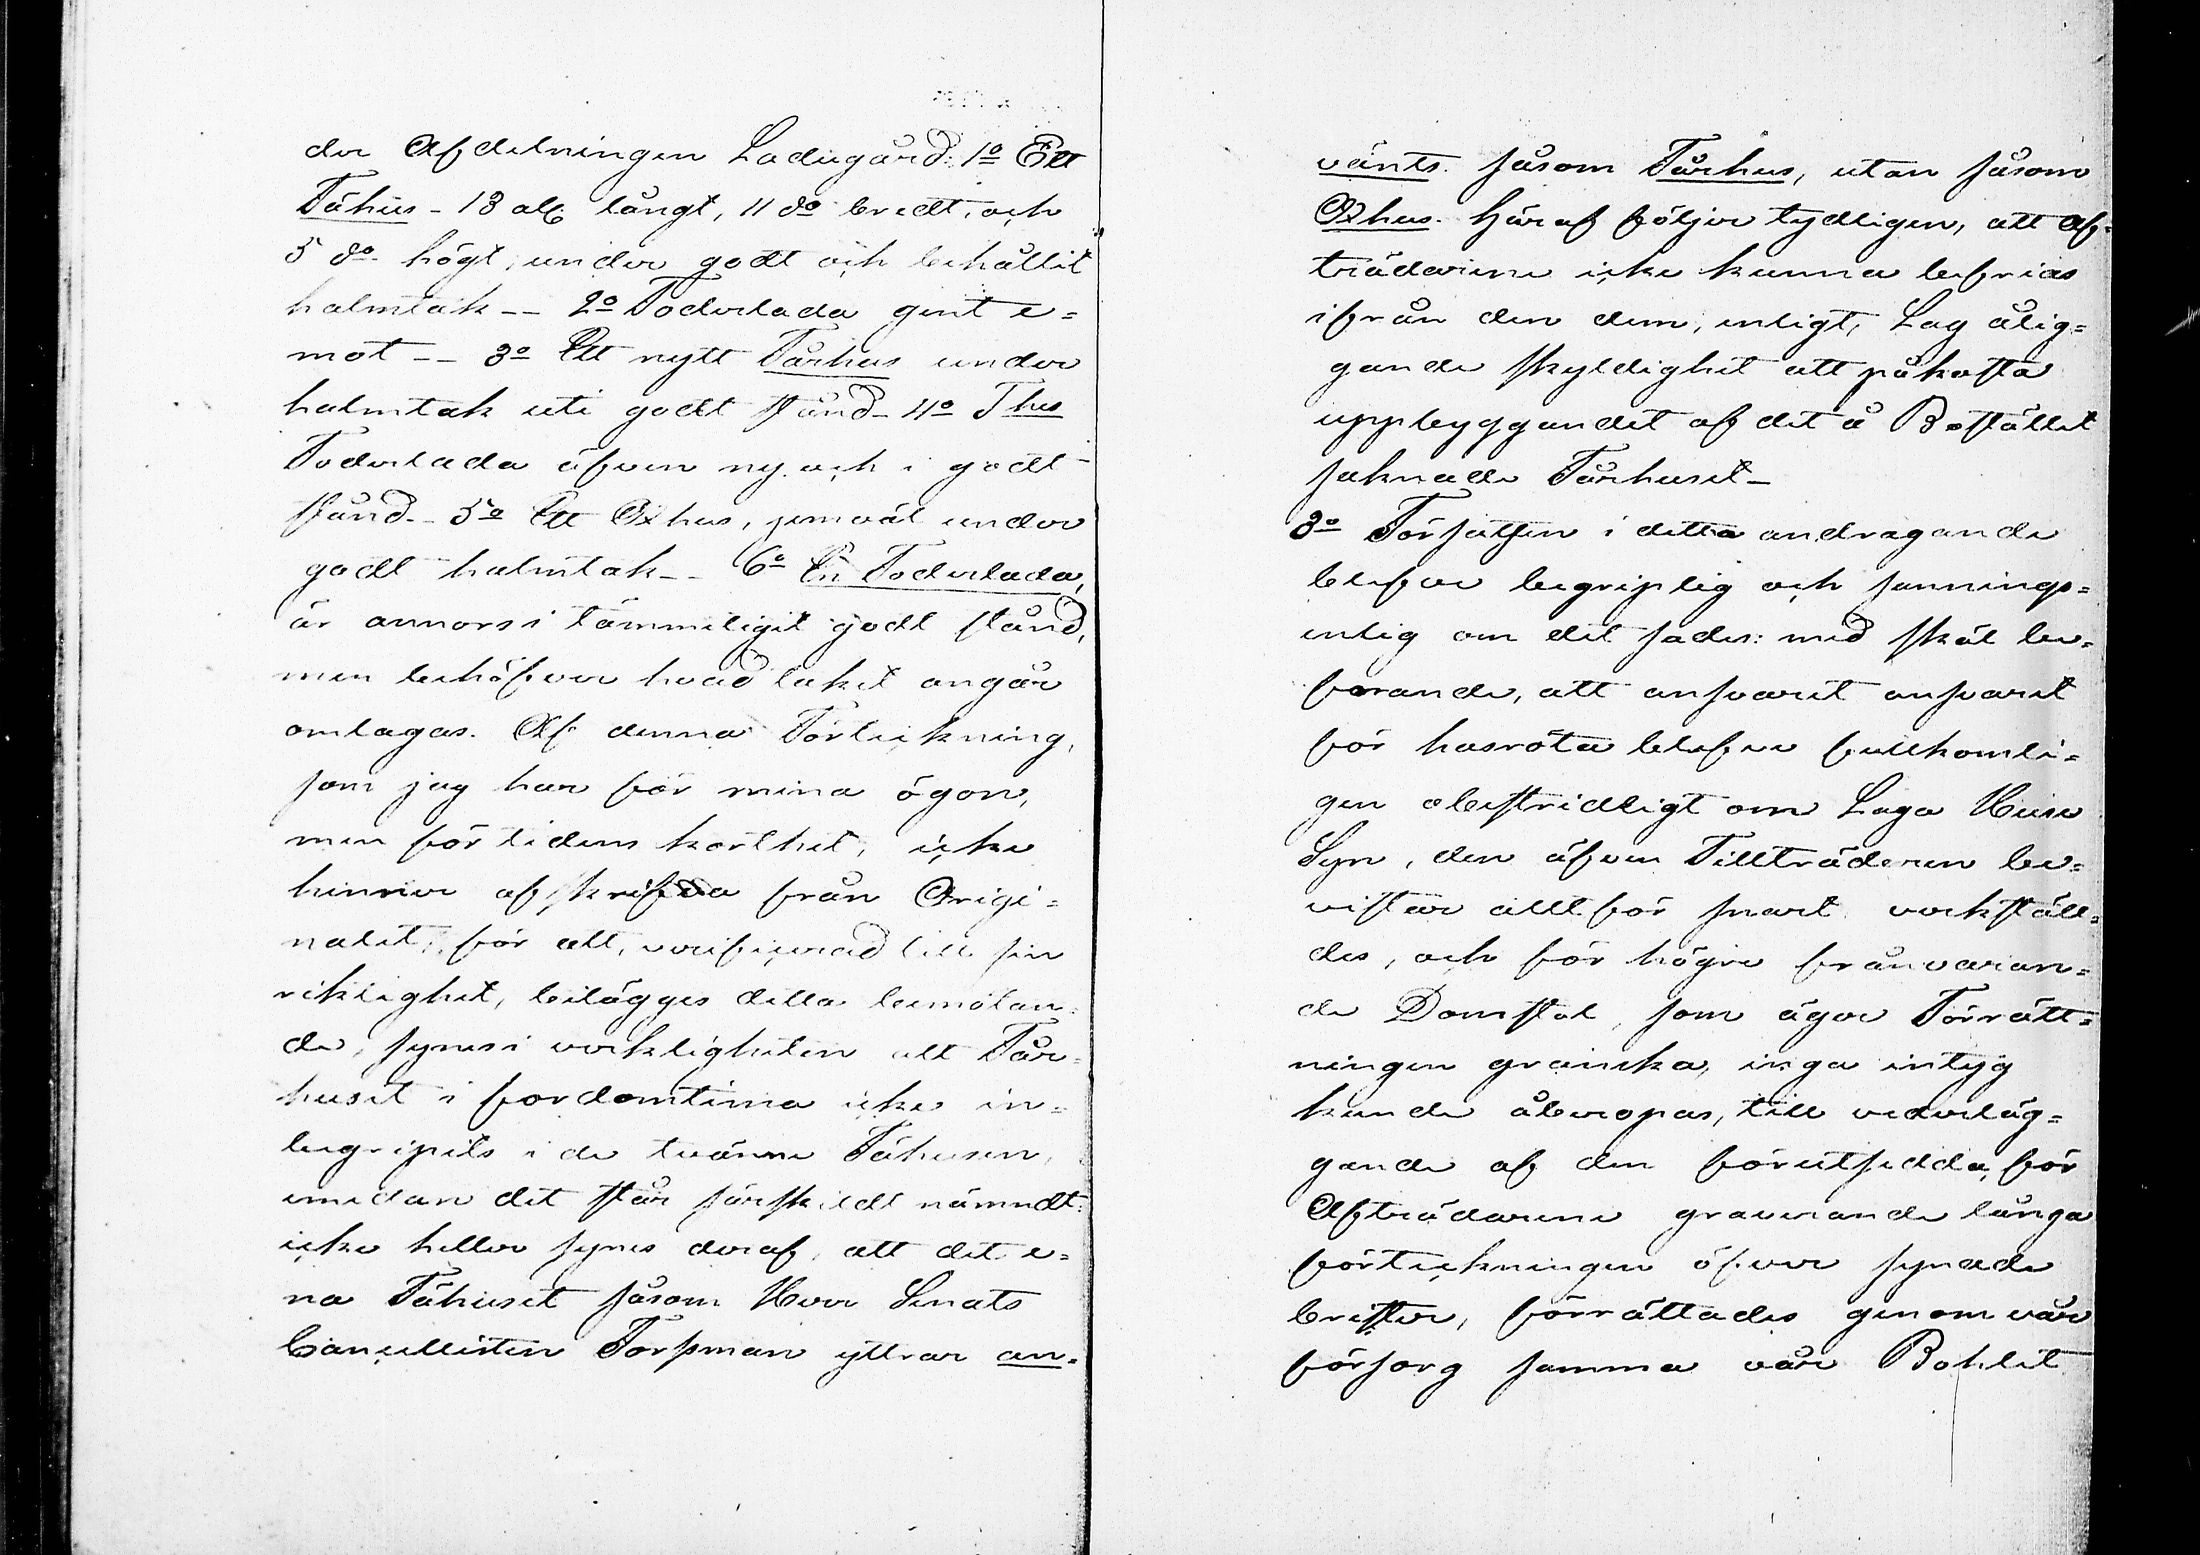 der Afdelningen Ladugård: 1o Ett
Fähus - 13 aln långt, 11 do bredt, och
5 do högt, under godt och behållit
halmtak -- 2o Foderlada gent e=
mot -- 3o Ett nytt Fårhus under
halmtak uti godt stånd - 4o Thes
Foderlada äfven ny och i godt
stånd. - 5o Ett Oxhus, jemväl under
godt halmtak -- 6o En Foderlada,
är annors i tämmeligit godt stånd,
men behöfver hvad taket angår
omlagas. Af denna Förteckning,
som jag har för mina ögon,
men för tidens korthet, icke
hinner afskrifva från Origi=
nalet, för att, verificerad till sin
riktighet, belägges detta bemötan=
de, synes i verkligheten att Får=
huset i fordomtima icke in=
begripits i de tvänne Fähusen,
emedan det står särskildt nämndt:
icke heller synes deraf, att det e=
na Fähuset såsom Herr Senats
Cancellisten Forsman yttrar an=
vänts såsom Fårhus, utan såsom
Oxhus. Häraf följer tydligen, att Af=
trädarene icke kunna befrias
ifrån den dem, enligt, Lag ålig=
gande skyldighet att påkosta
uppbyggandet af det å Bostället
saknade Fårhuset -
3o Försatsen i detta andragande
blefve begriplig och sannings=
enlig om det sades: med skäl be=
farande, att ansvaret ansvaret
för husröta blefve fullkomli=
gen obestridligt om Laga Huse
Syn, den äfven Tillträdaren be=
vistar allt för snart verkställ=
des, och för högre frånvaran=
de Domstol, som äger Förrätt=
ningen granska, inga intyg
kunde åberopas, till vederläg=
gande af den förutsedda, för
Afträdarene graverande långa
förteckningen öfver synade
brister, förrättades genom vår
försorg samma vår Bohlet